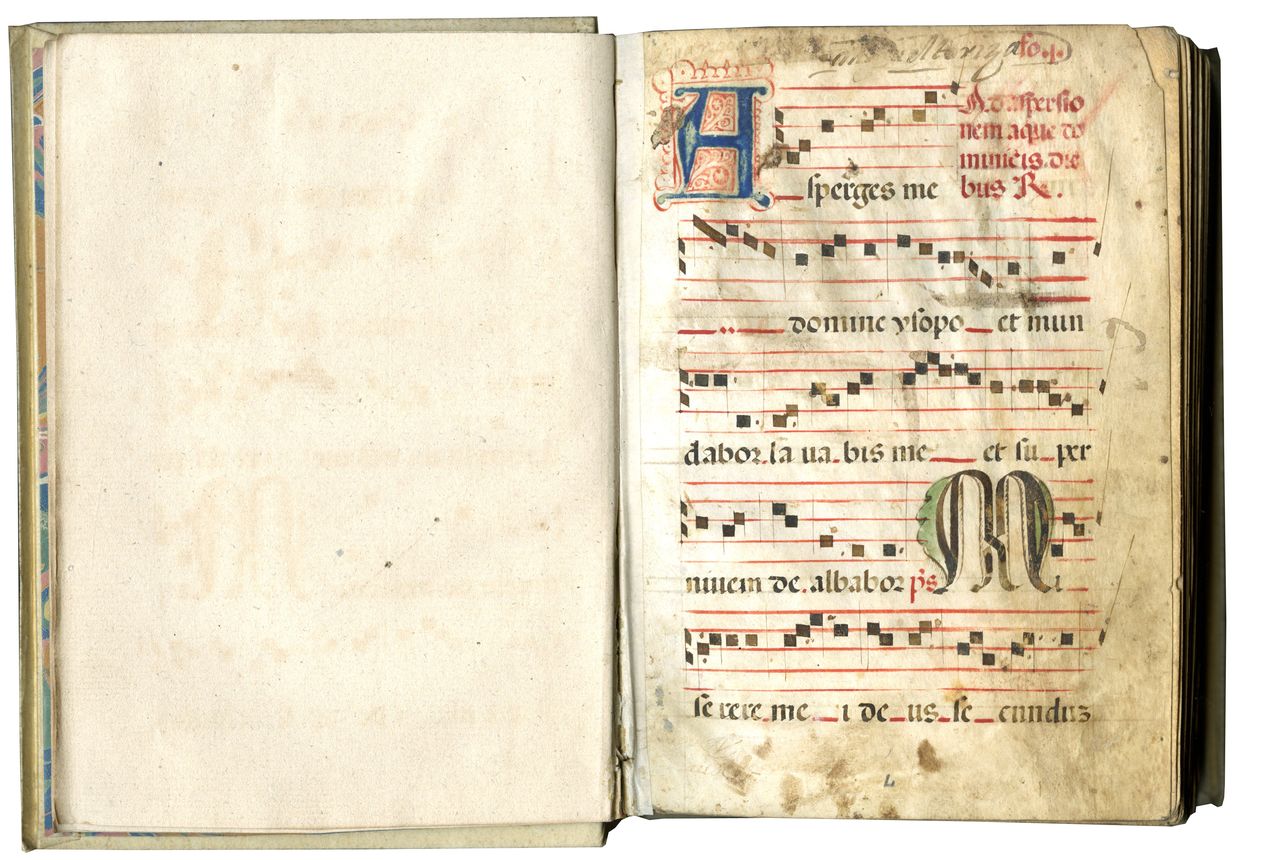 fo. .j.
Ad aspersio
nem aque do
minicis die
bus R.
Asperges me
domine ysopo et mun
dabor la va bis me et su per
nivem de albabor ps Mi
se rere me i de us se cunduz